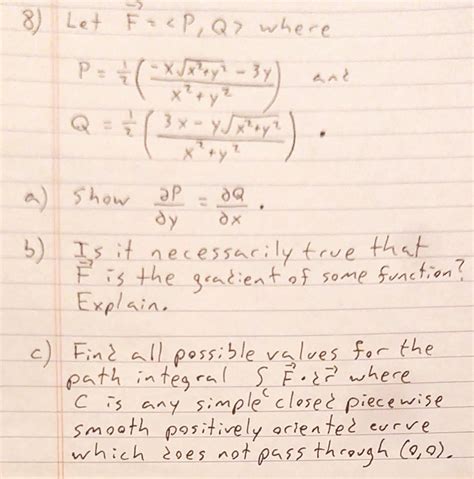 8) Let F⃗ = <P, Q> where
P = 1/2 ( (-x√(x²+y²) - 3y) / (x² + y²) ) and
Q = 1/2 ( (3x - y√(x²+y²)) / (x² + y²) ).
a) Show ∂P/∂y = ∂Q/∂x.
b) Is it necessarily true that
F⃗ is the gradient of some function?
Explain.
c) Find all possible values for the
path integral ∫_C F⃗·dr⃗ where
C is any simple closed piecewise
smooth positively oriented curve
which does not pass through (0,0).